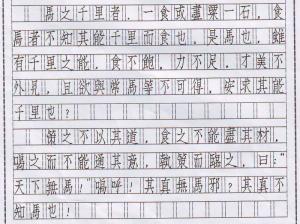 馬之千里者，一食或盡粟一石，食
馬者不知其能千里而食也。是馬也，雖
有千里之能，食不飽，力不足，才美不
外見，且欲與常馬等不可得，安求其能
千里也？
策之不以其道，食之不能盡其材，
鳴之而不能通其意，執策而臨之，曰：“
天下無馬！”嗚呼！其真無馬邪？其真不
知馬也！